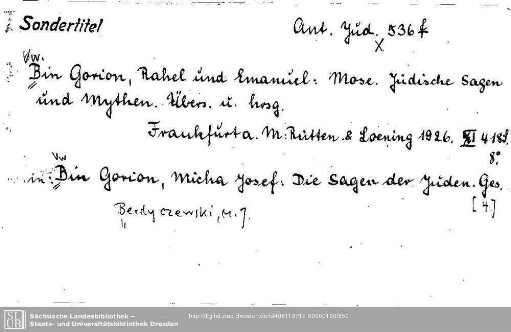 Sondertitel
Ant. Jud. 536 f
X
Vw.
Bin Gorion, Rahel und Emanuel: Mose. Jüdische Sagen
und Mythen. Übers. u. hrsg.
Frankfurt a. M: Rütten & Loening 1926. XI 418 S.
8°
Vw
in: Bin Gorion, Micha Josef: Die Sagen der Juden. Ges.
[4]
Berdyczewski, M. J.
Sächsische Landesbibliothek –
Staats- und Universitätsbibliothek Dresden